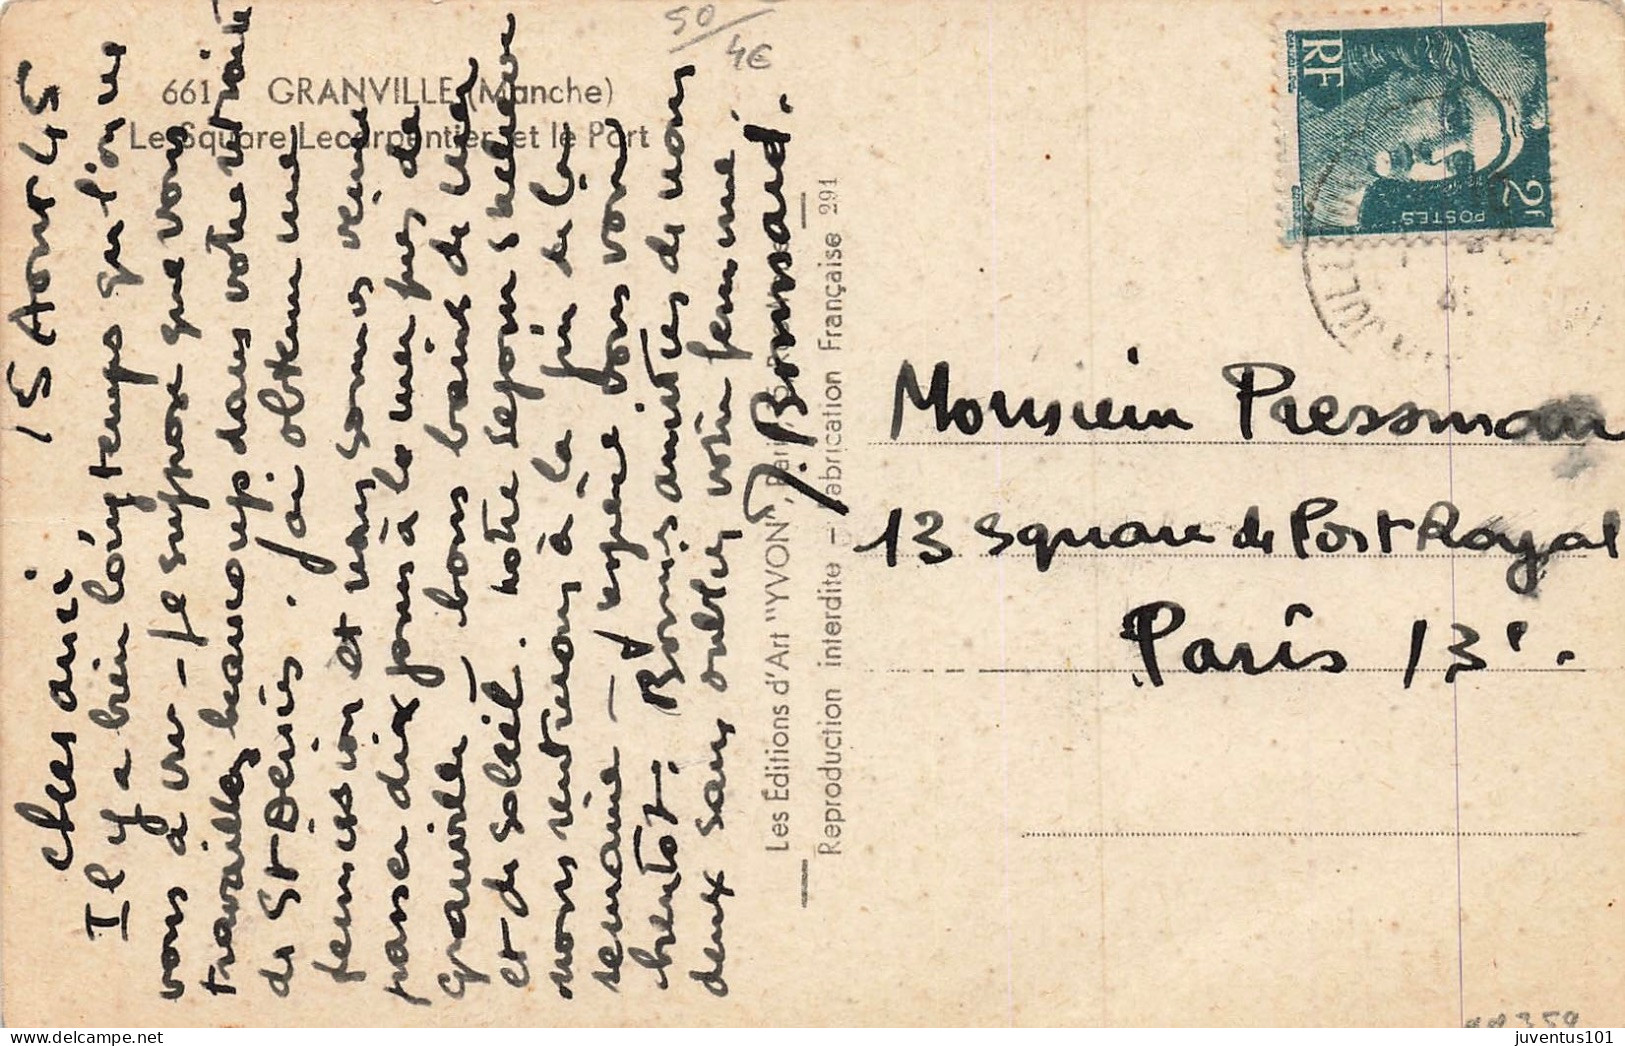 661 GRANVILLE (Manche)
Le Square Lecarpentier et le Port
50/4€
15 Aout 45
Cher ami
Il y a bien longtemps qu'on ne
vous a vu - Je suppose que vous
travaillez beaucoup dans votre retraite
de St Denis. J'ai obtenu une
permission et nous sommes venus
passer dix jours à la mer près de
Granville, bons bains de mer
et de soleil. notre séjour s'achève
nous rentrerons à la fin de la
semaine - J'espère vous voir
bientôt. Bonnes amitiés de nous
deux sans oublier votre femme
J. Bonsard.
Les Éditions d'Art "YVON", Paris
Reproduction interdite - Fabrication Française 291
RF
2F
POSTES
Monsieur Pressman
13 Square de Port Royal
Paris 13e.
juventus101